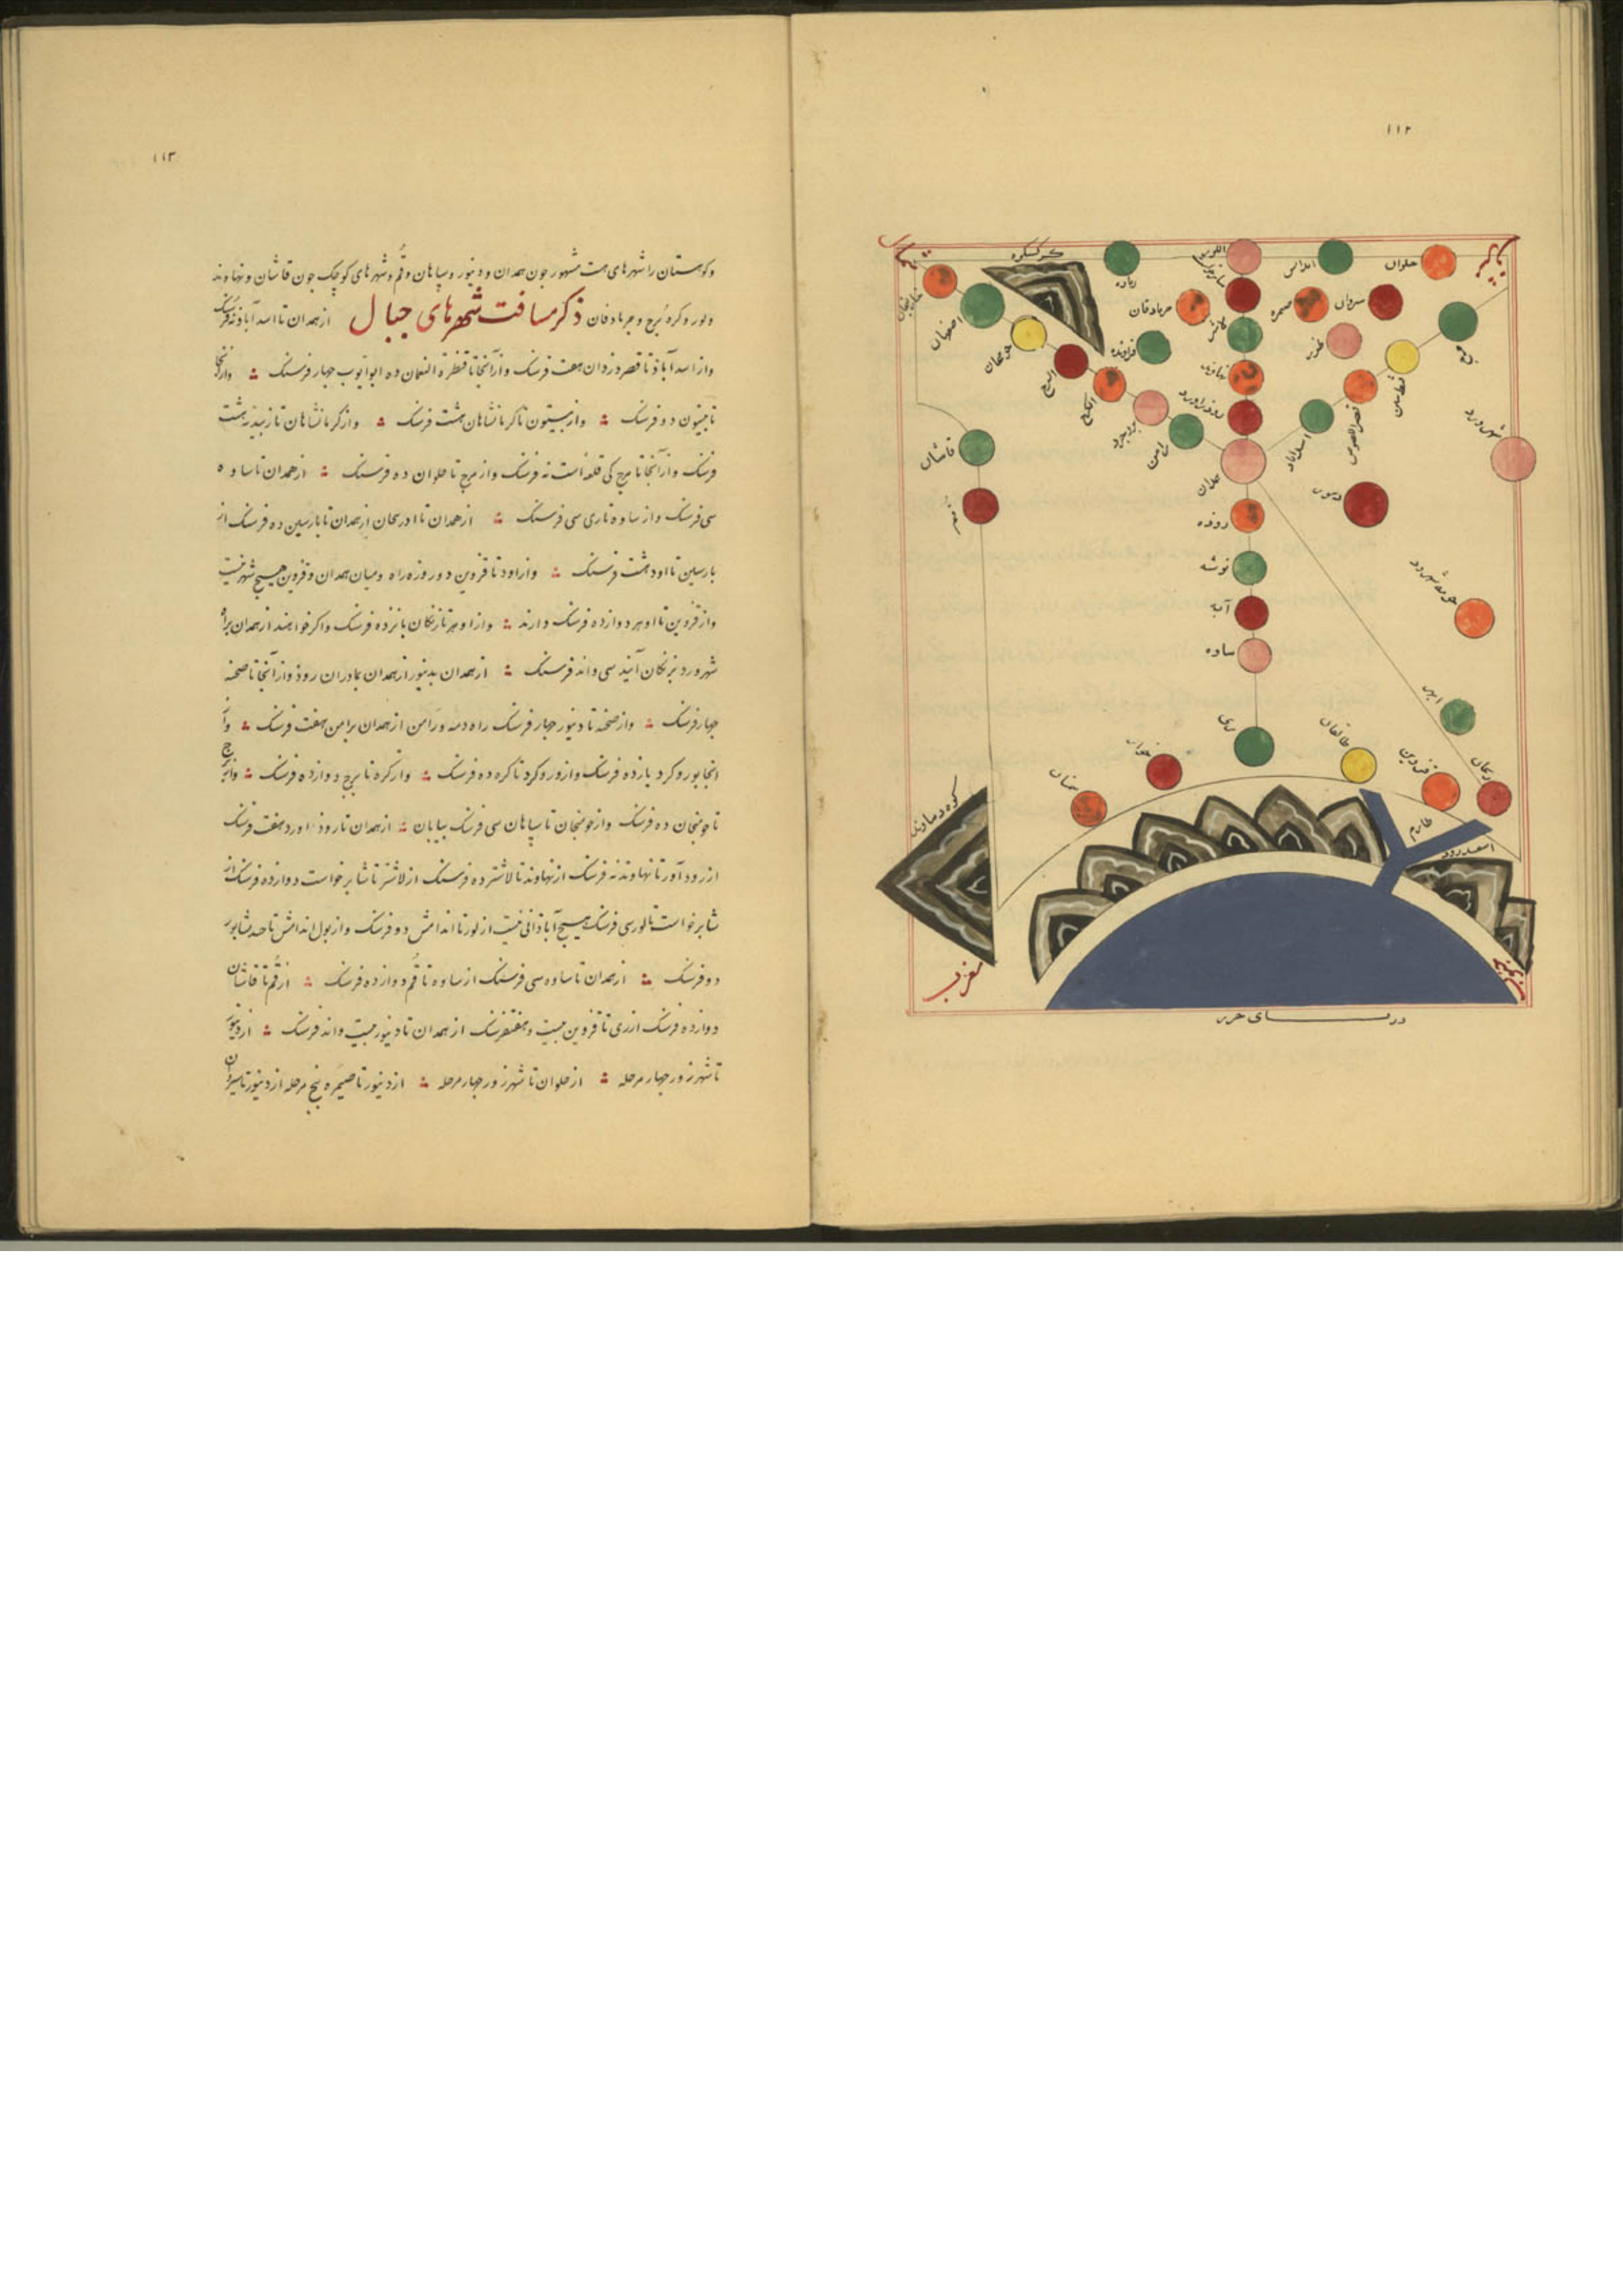 ١١٢
حلوان
سیروان
صیمره
اللور
لاشتر
نهاوند
روذراورد
جرباذقان
کرکسکوه
اصفهان
البرج
الکرج
بروجرد
رامن
همدان
اسدآباد
قصراللصوص
طزر
مرج
شهرورد
دینور
قاشان
قم
روذه
نوشته
آبه
ساوه
ری
سمنان
طالقان
قزوین
زنجان
ابهر
کوه دماوند
طارم
اسفیدرود
مغرب
دریای خزر
١١٣
وکوهستان را شهرهای هست مشهور جون همدان و دینور و سپاهان و قم و شهرهای کوجک جون قاشان و نهاوند
ولور وکره برج وجرباذقان ذکر مسافت شهرهای جبال از همدان تا اسدآباذ نه فرسنک
واز اسدآباذ تا قصر دزدان هفت فرسنک وازآنجا تا قنطرة النعمان ده ابوایوب جهار فرسنک وازآنجا
تا بیستون دو فرسنک واز بیستون تا کرمانشاهان هشت فرسنک واز کرمانشاهان تا زبیدیه هشت
فرسنک وازآنجا تا مرج کی قلعه است نه فرسنک واز مرج تا حلوان ده فرسنک ازهمدان تا ساوه
سی فرسنک واز ساوه تا ری سی فرسنک ازهمدان تا ادربیجان ازهمدان تا بارسین ده فرسنک از
بارسین تا اود هشت فرسنک واز اود تا قزوین دو روزه راه ومیان همدان وقزوین هیچ شهر نیست
واز قزوین تا اوهر دوازده فرسنک دارند واز اوهر تا زنکان بانزده فرسنک واکر خواهند ازهمدان براه
شهرورد بزنکان آیند سی واند فرسنک ازهمدان بدینور ازهمدان بمادران روذ وازآنجا تا صحنه
جهار فرسنک واز صحنه تا دینور جهار فرسنک راه دمه ورامن ازهمدان برامن هفت فرسنک واز
انجا بوروکرد یازده فرسنک واز وروکرد تا کره ده فرسنک واز کره تا برج دوازده فرسنک واز برج
تا خونجان ده فرسنک واز خونجان تا سپاهان سی فرسنک بیابان ازهمدان تا روذ اورد هفت فرسنک
از روذ آور تا نهاوند نه فرسنک از نهاوند تا لاشتر ده فرسنک از لاشتر تا شابرخواست دوازده فرسنک از
شابرخواست تا لور سی فرسنک هیچ آباذانی نیست از لور تا اندامش دو فرسنک واز پول اندامش تا جندشابور
دو فرسنک ازهمدان تا ساوه سی فرسنک از ساوه تا قم دوازده فرسنک از قم تا قاشان
دوازده فرسنک از ری تا قزوین بیست وهفت فرسنک ازهمدان تا دینور بیست واند فرسنک از دینور
تا شهرزور جهار مرحله از حلوان تا شهرزور جهار مرحله از دینور تا صیمره پنج مرحله از دینور تا سیروان